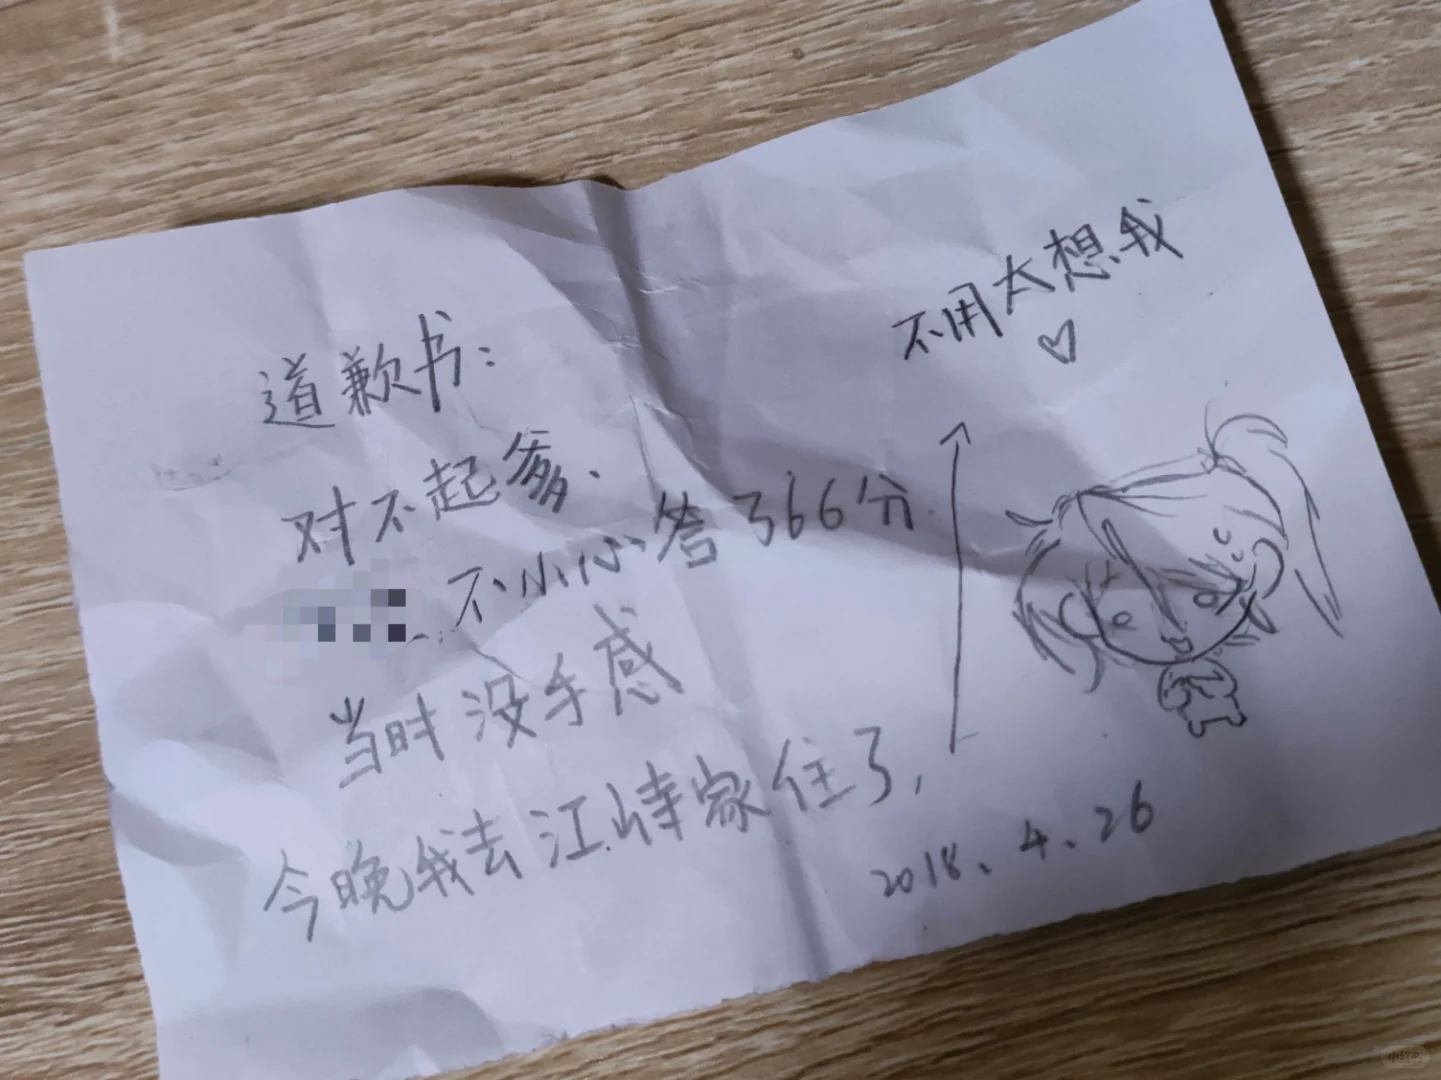 道歉书:
对不起爹.
不小心答了66分.
当时没手感
今晚我去江峙家住了,
不用太想我
♡
2018.4.26
小红书